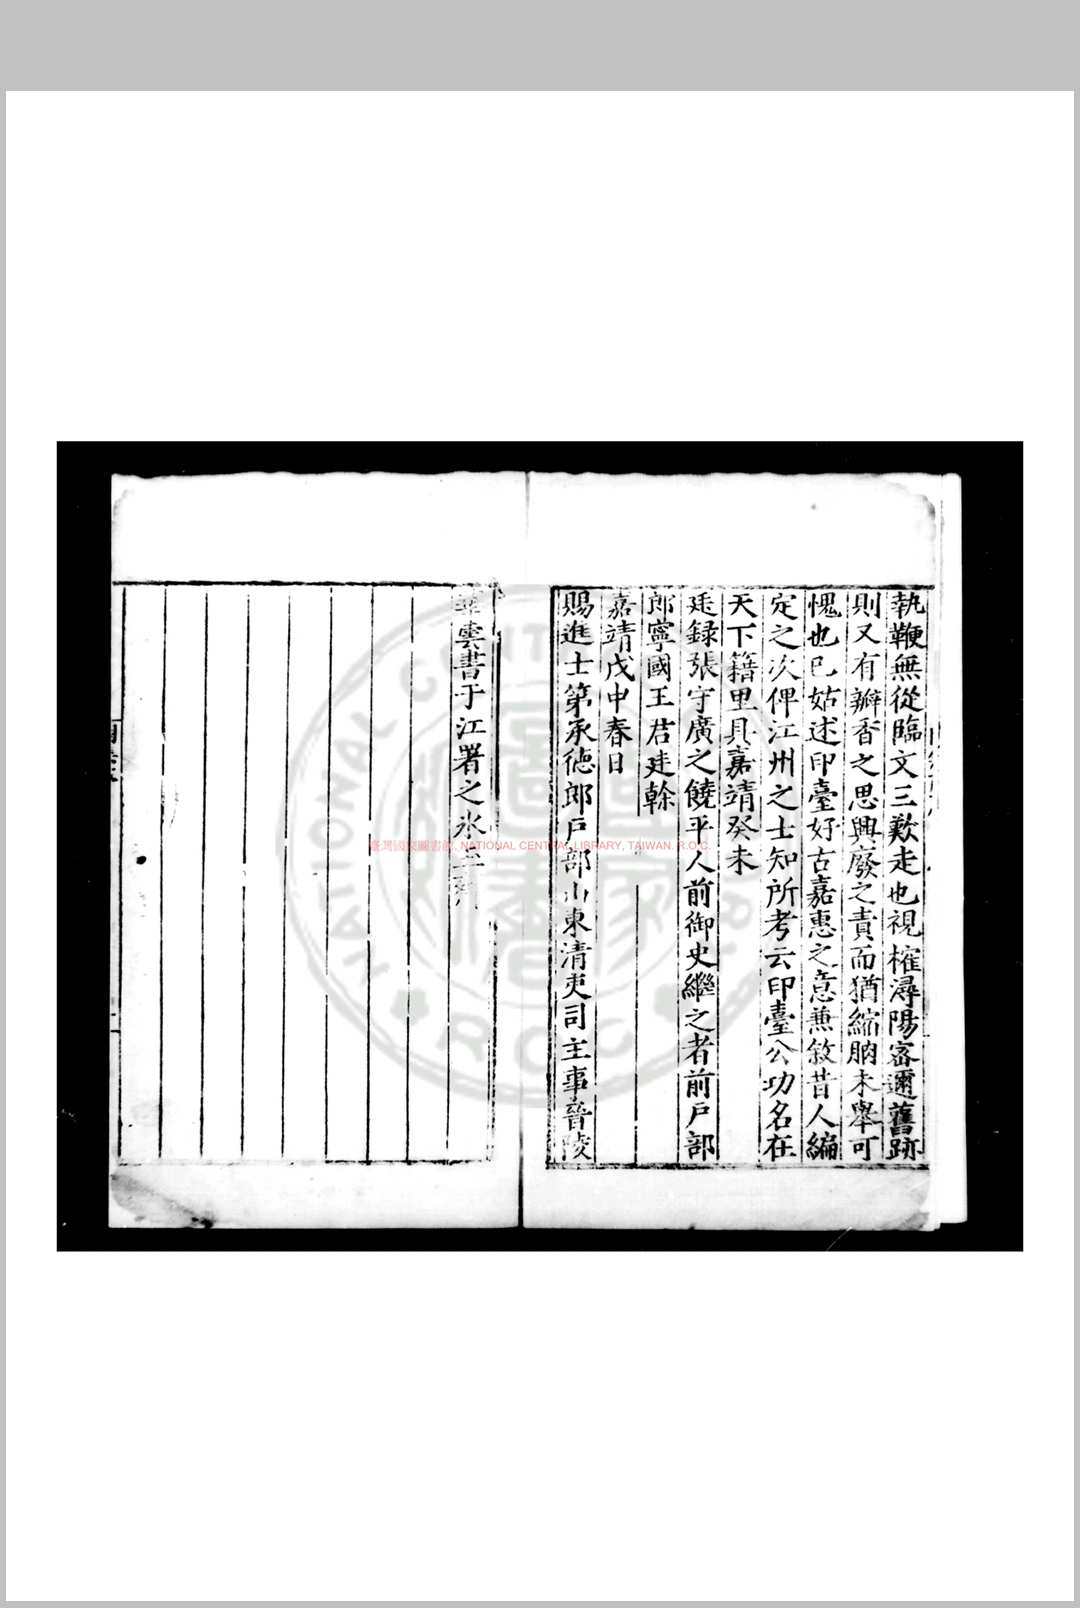 執鞭無從臨文三歎走也視榷潯陽密邇舊跡
則又有瓣香之思興廢之責而猶縮朒未舉可
愧也已姑述印臺好古嘉惠之意兼敘昔人編
定之次俾江州之士知所考云印臺公功名在
天下籍里具嘉靖癸未
廷錄張守廣之饒平人前御史繼之者前戶部
郎寧國王君廷榦
嘉靖戊申春日
賜進士第承德郎戶部山東清吏司主事晉陵
華雲書于江署之水
臺灣國家圖書館, NATIONAL CENTRAL LIBRARY, TAIWAN, R.O.C.
NATIONAL CENTRAL
R.O.C